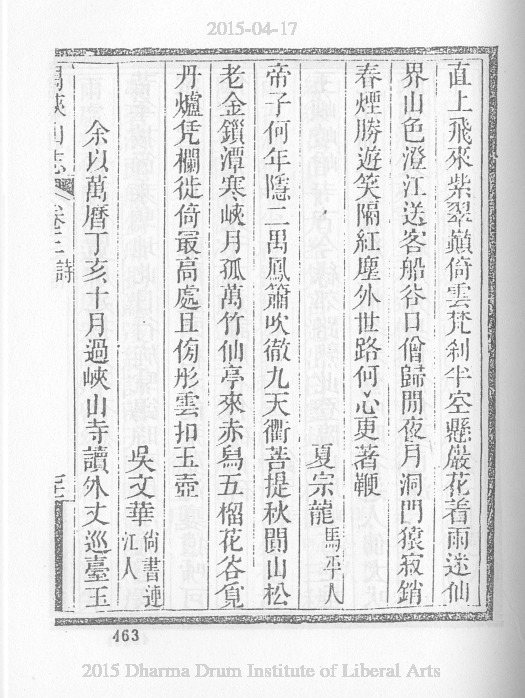 2015-04-17
直上飛來紫翠巔倚雲梵刹半空懸嚴花着雨迷仙
界山色澄江送客船谷口僧歸閒夜月洞門猿寂銷
春煙勝遊笑隔紅塵外世路何心更著鞭
夏宗龍 馬平人
帝子何年隱二禺鳳簫吹徹九天衢菩提秋閴山松
老金鎖潭寒峽月孤萬竹仙亭來赤舄五榴花谷覓
丹爐凭欄徙倚最高處且傍彤雲扣玉壺
吳文華 尙書連江人
余以萬曆丁亥十月過峽山寺讀外丈巡臺玉
禺峽山志 卷二 詩
463
2015 Dharma Drum Institute of Liberal Arts